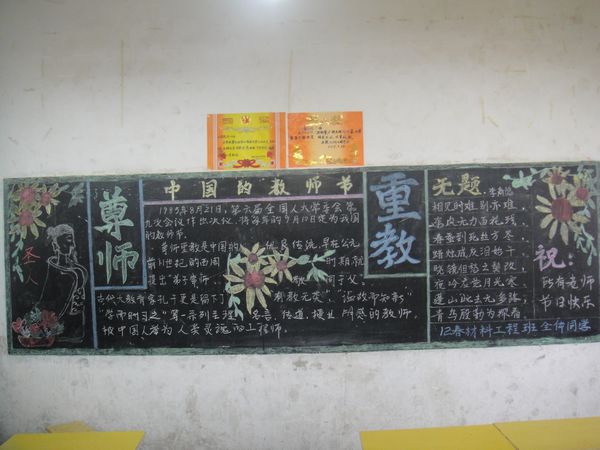 圣人
尊师
中国的教师节
1985年8月21日,第六届全国人大常委会第
九次会议作出决议,将每年的9月10日定为我国
的教师节。
尊师重教是中国的 优良传统,早在公元
前11世纪的西周 时期就
提出"弟子事师, 敬 同于父"
古代大教育家孔子更是留下了 有教无类" "温故而知新"
"学而时习之"等一系列至理 名言。传道、授业、解惑的教师,
被中国人誉为人类灵魂的工程师。
重教
无题 李商隐
相见时难别亦难
东风无力百花残
春蚕到死丝方尽
蜡炬成灰泪始干
晓镜但愁云鬓改
夜吟应觉月光寒
蓬山此去无多路
青鸟殷勤为探看
祝:
所有老师
节日快乐
12春材料工程班全体同学